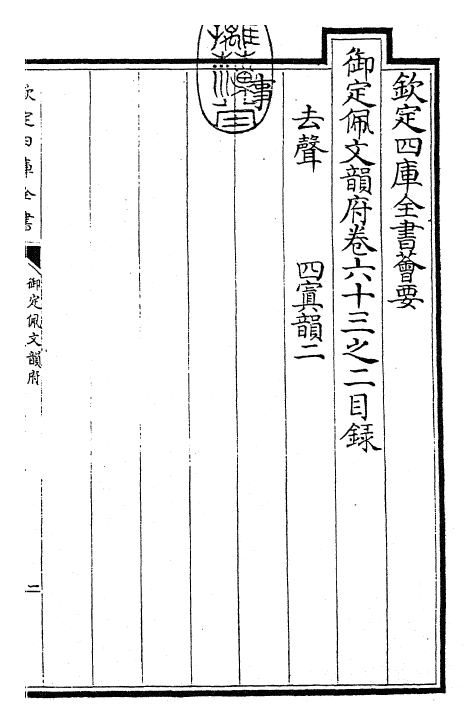 欽定四庫全書薈要
御定佩文韻府卷六十三之二目錄
去聲　四寘韻二
事
欽定四庫全書
御定佩文韻府
二